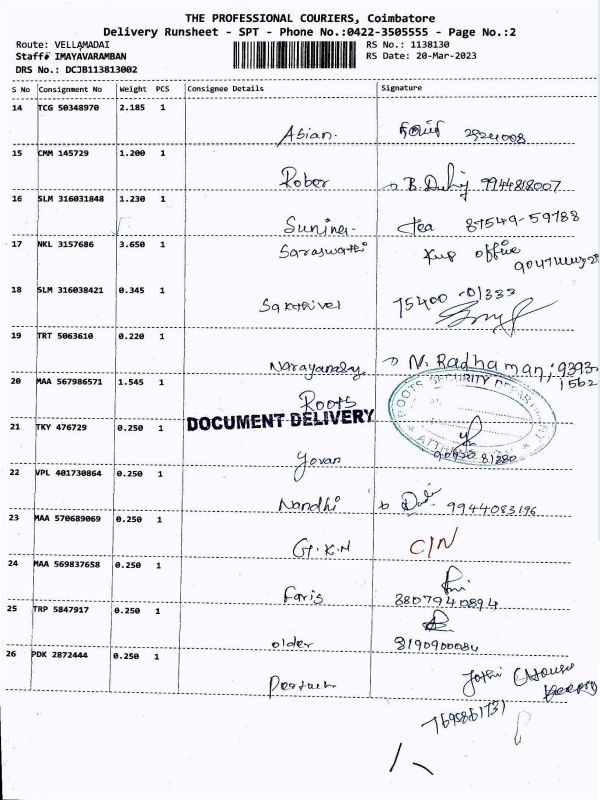 THE PROFESSIONAL COURIERS, Coimbatore
Delivery Runsheet - SPT - Phone No.:0422-3505555 - Page No.:2
Route: VELLAMADAI RS No.: 1138130
Staff# IMAYAVARAMBAN RS Date: 20-Mar-2023
DRS No.: DCJB113813002
S No Consignment No Weight PCS Consignee Details Signature
14 TCG 50348970 2.185 1
Asian.
15 CMM 145729 1.200 1
Rober 9944818007
16 SLM 316031848 1.230 1
Sunines. Tea 87549-59788
17 NKL 3157686 3.650 1
Saraswathi Kup office
18 SLM 316038421 0.345 1
Sakthivel 75400-01333
19 TRT 5063610 0.220 1
N. Radhamani, 9393
1562
20 MAA 567986571 1.545 1
Roots
ROOTS SECURITY DEPARTMENT
DOCUMENT DELIVERY
21 TKY 476729 0.250 1
Yovan
22 VPL 401730864 0.250 1
Nandhi 9944083196
23 MAA 570689069 0.250 1
G.K.N C/N
24 MAA 569837658 0.250 1
Faris 3807940894
25 TRP 5847917 0.250 1
older 8190900084
26 PDK 2872444 0.250 1
Jothi (House
keeping
7695861731